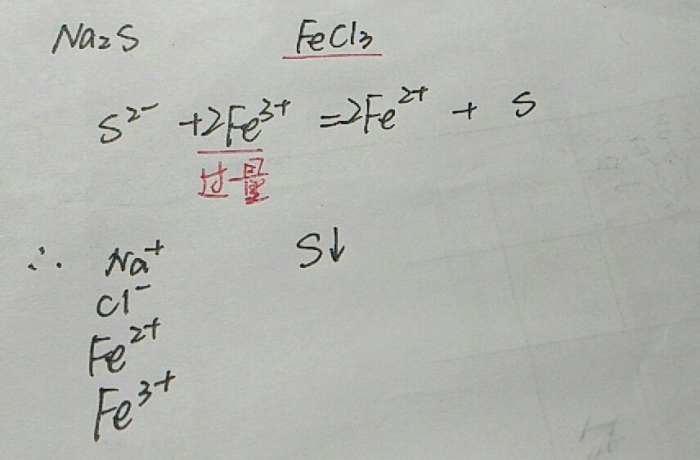 Na₂S FeCl₃
S²⁻ +2Fe³⁺ =2Fe²⁺ + S
过量
∴ Na⁺ S↓
Cl⁻
Fe²⁺
Fe³⁺